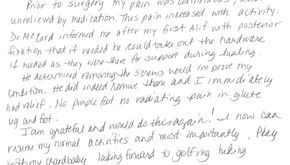 Prior to surgery my pain was continuous,
unrelieved by medication. This pain increased with activity.
Dr McCord informed me after my first Alif with posterior
fixation that if needed he could take out the hardware
if needed as they were there for support during healing.
He determined removing the screws would improve my
condition. He did indeed remove them and I immediately
had relief. No purple foot no radiating pain in glute
leg and foot.
I am grateful and would do this again! I now can
resume my normal activities and most importantly, Play
with my Grandbabies looking forward to golfing hiking